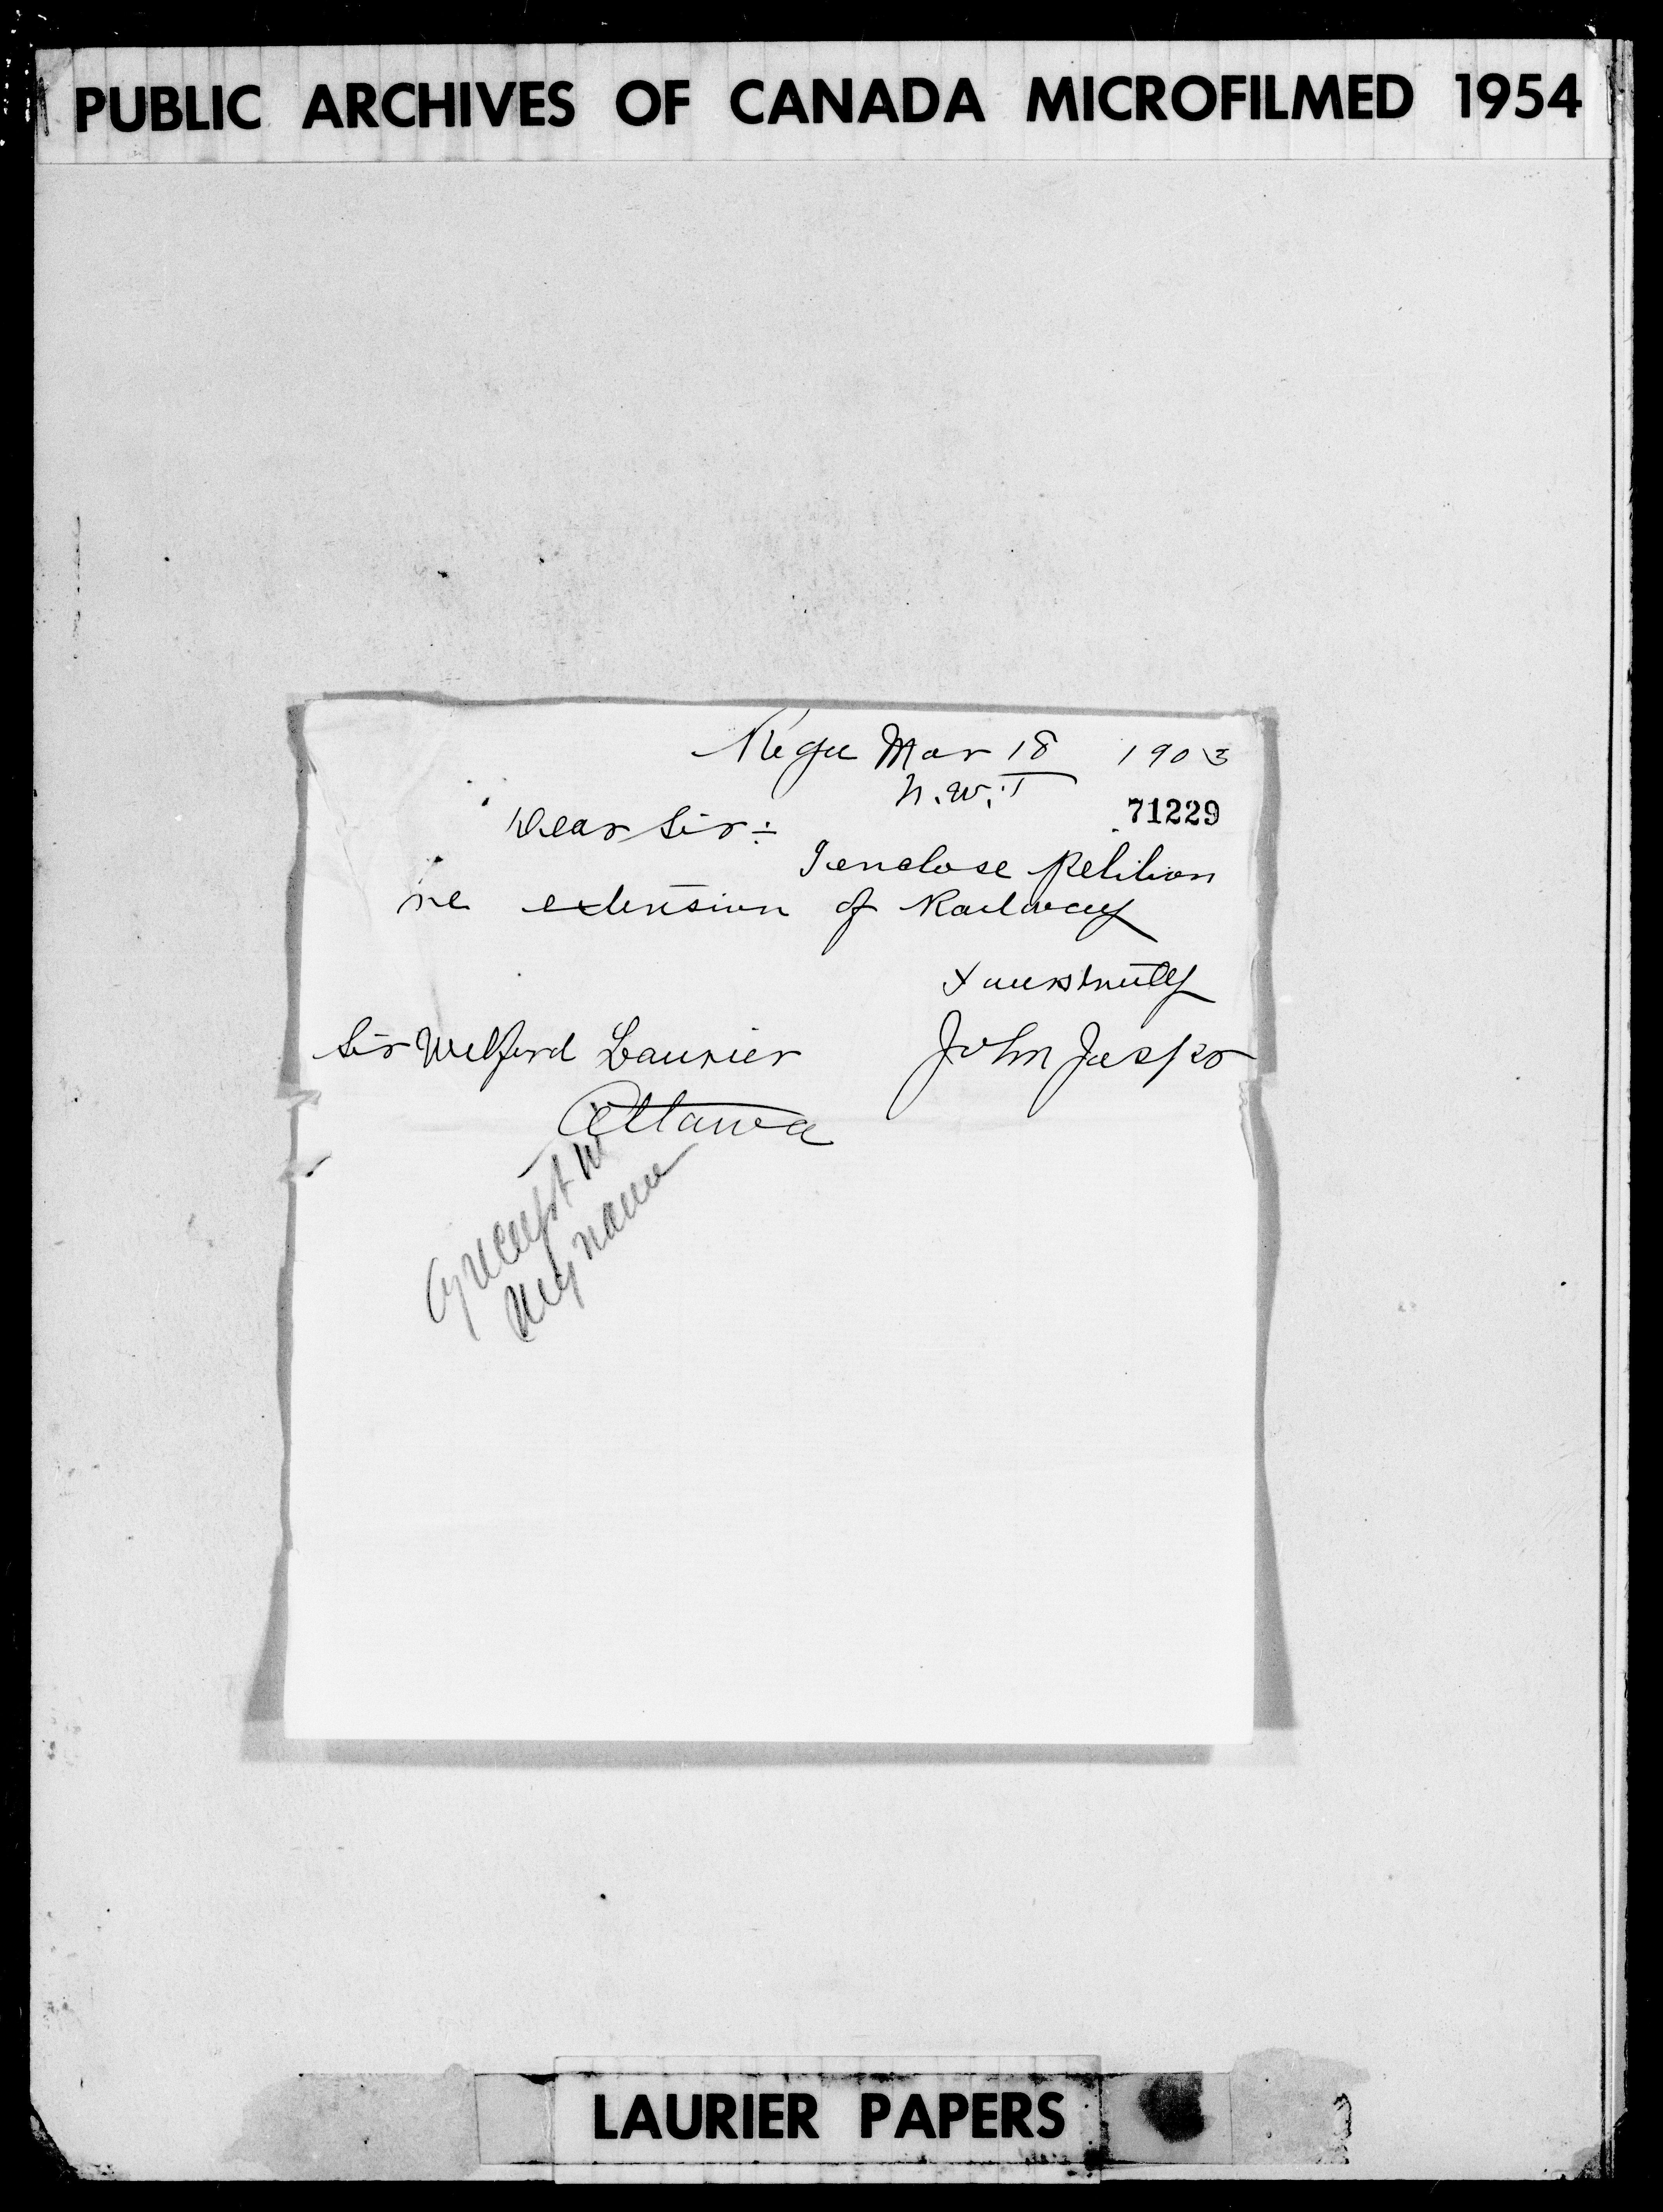 PUBLIC ARCHIVES OF CANADA MICROFILMED 1954
Mar 18 1903
N.W.T
71229
Dear Sir:-
I enclose petition
re extension of Railway
Yours truly
Sir Wilford Laurier John
Ottawa
my name
LAURIER PAPERS